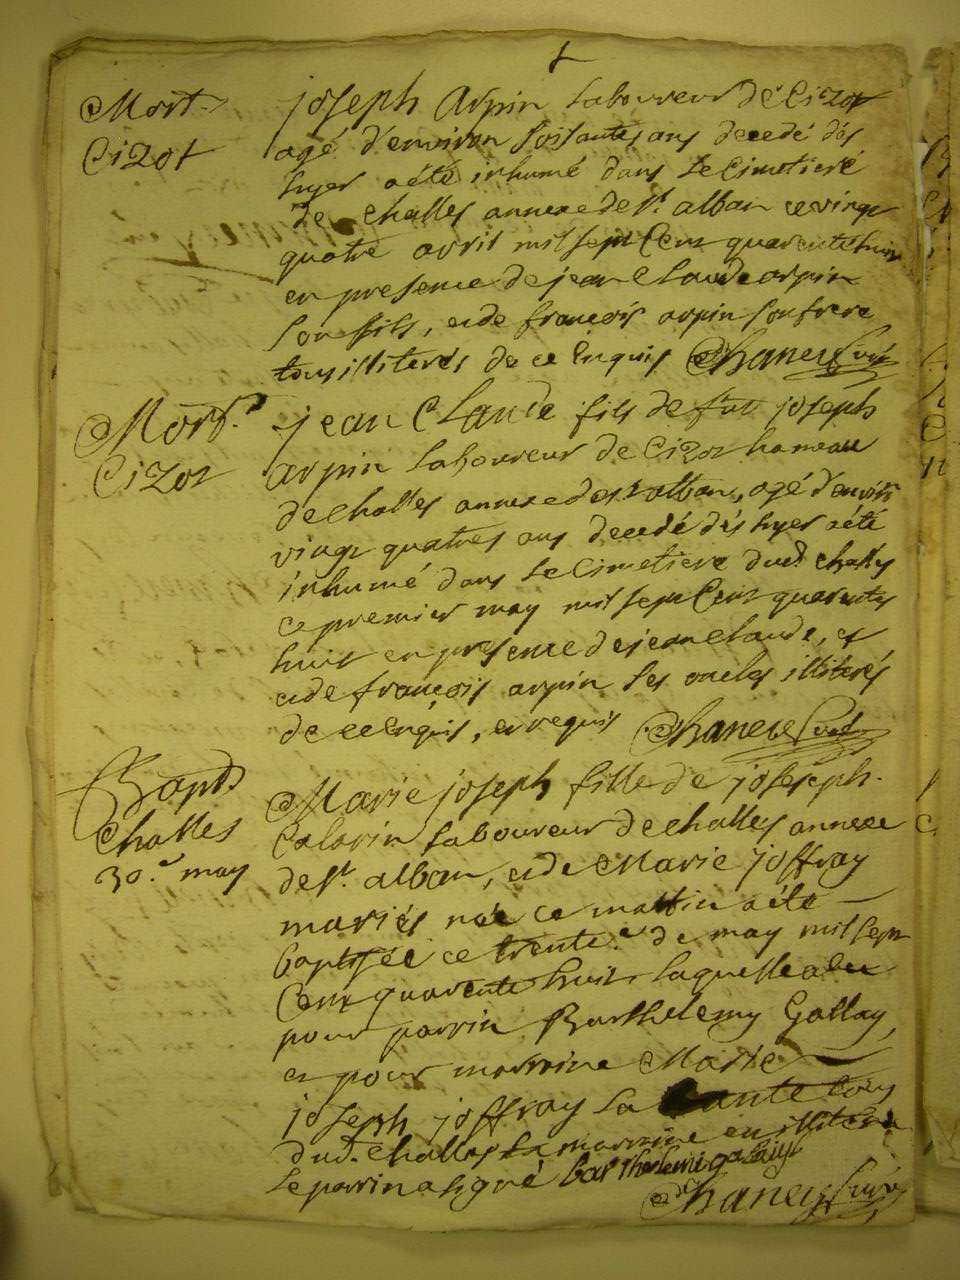 Mort
Cizot
joseph Arpin Laboureur de Cizot
agé d'environ soisantes ans decedé dès
hyer a été inhumé dans Le Cimetieré
de challes annexe de st. alban ce vingt
quatre avril mil sept Cent quarente huit
en presence de jean Claude arpin
son fils, et de françois arpin son frere
tous illiterés de ce Enquis Chaney Curé
Mort.
Cizot
jean Claude fils de fut joseph
arpin Laboureur de Cizot hameau
de challes annexe de st alban, agé d'environ
vingt quatres ans decedé dès hyer a été
inhumé dans Le Cimetiere dud. challes
ce premier may mil sept Cent quarentes
huit en presence de jean claude, et
et de françois arpin ses oncles illiterés
de ce Enquis, et requis Chaney Curé
Bapt.
challes
30.e may
Marie joseph fille de joseph
Calarin Laboureur de challes annexe
de st. alban, et de Marie joffray
mariés née ce mattin a été
baptisée ce trente.e de may mil sept
Cent quarente huit, laquelle a eu
pour parrin Barthelemy Gallay,
et pour marraine Marie
joseph joffray La tante tous
dud. challes La marraine est illiterée
Le parrin a signé barthelemi galaiy
Chaney Curé